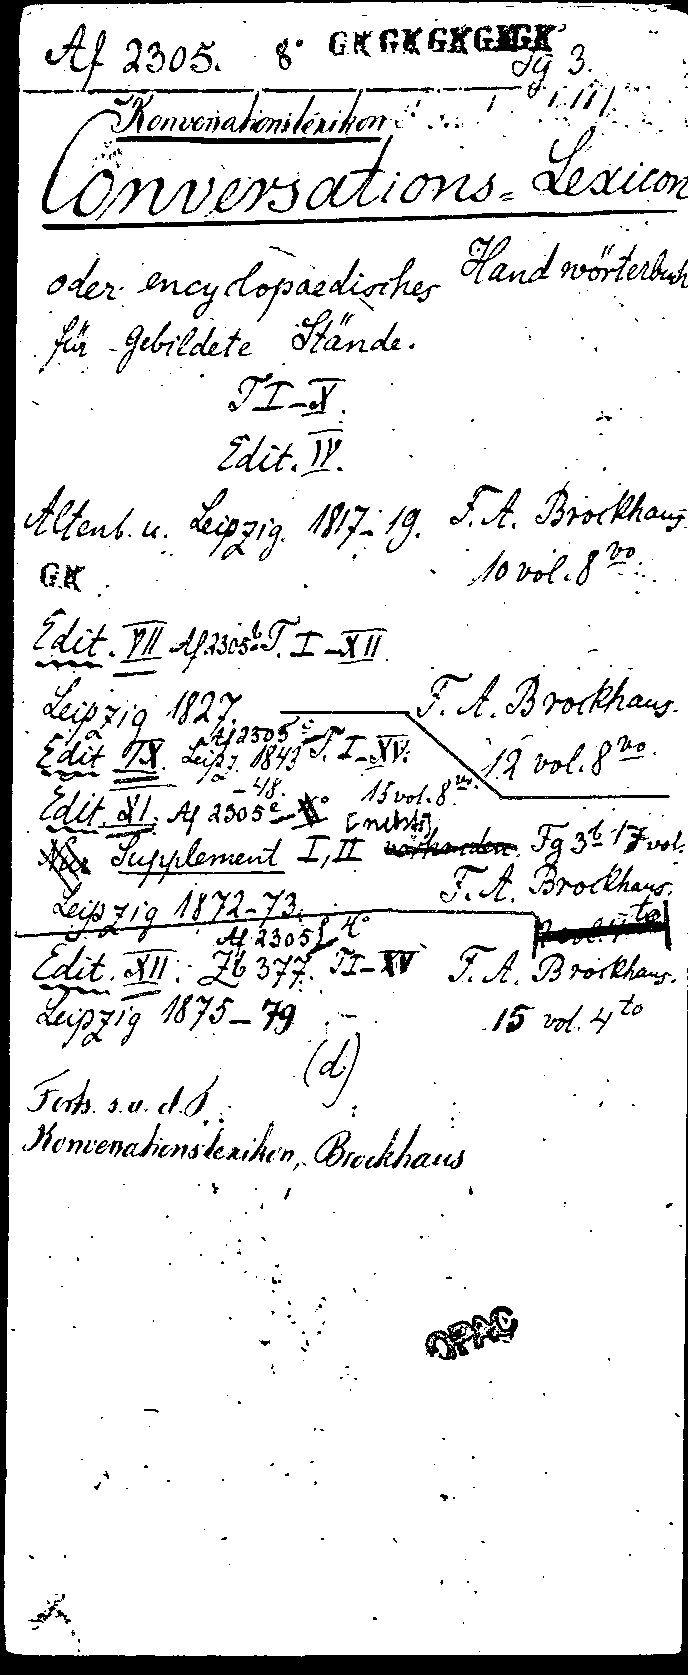 Af 2305. 8° GK GK GK GK GK
Fg 3.
Konversationslexikon
Conversations-Lexicon
oder encyclopaedisches Handwörterbuch
für gebildete Stände.
T I-X.
Edit. IV.
Altenb. u. Leipzig. 1817-19. F. A. Brockhaus
10 vol. 8vo.
GK
Edit. VII Af 2305b T. I-XII
Leipzig 1827. F. A. Brockhaus.
12 vol. 8vo.
Af 2305c
Edit IX. Leipz. 1843 T. I-XV.
-48. 15 vol. 8vo.
Edit. XI. Af 2305e
Nur Supplement I, II vorhanden. Fg 3b 17 vol.
Leipzig 1872-73. F. A. Brockhaus.
Af 2305f 4°
Edit. XII. Zb 377. T I-XV F. A. Brockhaus.
Leipzig 1875-79 15 vol. 4to
(d.)
Forts. s. u. d.
Konversationslexikon, Brockhaus
OPAC